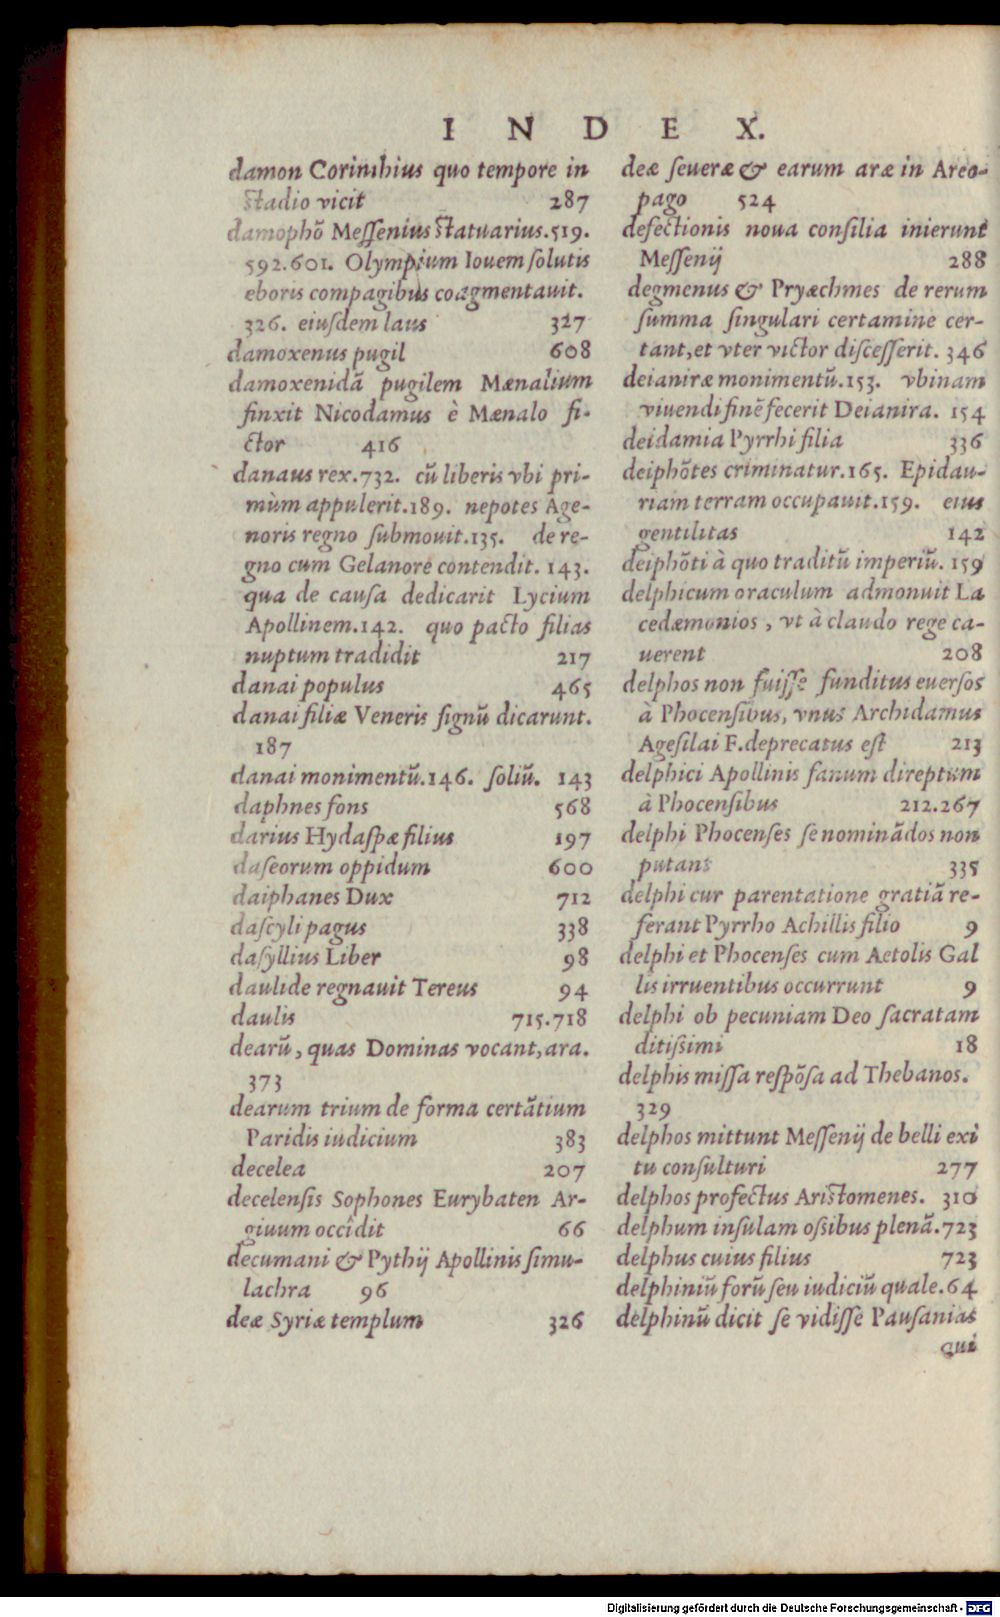 INDEX.
damon Corinthius quo tempore in
stadio vicit 287
damophõ Meſſenius ſtatuarius.519.
592.601. Olympium Iouem ſolutis
eboris compagibus coagmentauit.
326. eiuſdem laus 327
damoxenus pugil 608
damoxenidã pugilem Mænalium
finxit Nicodamus è Mænalo fi-
ctor 416
danaus rex.732. cũ liberis vbi pri-
mùm appulerit.189. nepotes Age-
noris regno ſubmouit.135. de re-
gno cum Gelanore contendit. 143.
qua de cauſa dedicarit Lycium
Apollinem.142. quo pacto filias
nuptum tradidit 217
danai populus 465
danai filiæ Veneris ſignũ dicarunt.
187
danai monimentũ.146. ſoliũ. 143
daphnes fons 568
darius Hydaſpæ filius 197
daſeorum oppidum 600
daiphanes Dux 712
daſcyli pagus 338
daſyllius Liber 98
daulide regnauit Tereus 94
daulis 715.718
dearũ, quas Dominas vocant, ara.
373
dearum trium de forma certãtium
Paridis iudicium 383
decelea 207
decelenſis Sophones Eurybaten Ar-
giuum occîdit 66
decumani & Pythij Apollinis ſimu-
lachra 96
deæ Syriæ templum 326
deæ ſeueræ & earum aræ in Areo-
pago 524
defectionis noua conſilia inierunt
Meſſenij 288
degmenus & Pryæchmes de rerum
ſumma ſingulari certamine cer-
tant, et vter victor diſceſſerit. 346
deianiræ monimentũ.153. vbinam
viuendi finẽ fecerit Deianira. 154
deidamia Pyrrhi filia 336
deiphõtes criminatur.165. Epidau-
riam terram occupauit.159. eius
gentilitas 142
deiphõti à quo traditũ imperiũ. 159
delphicum oraculum admonuit La
cedæmonios, vt à claudo rege ca-
uerent 208
delphos non fuiſſe funditus euerſos
à Phocenſibus, vnus Archidamus
Ageſilai F. deprecatus eſt 213
delphici Apollinis fanum direptum
à Phocenſibus 212.267
delphi Phocenſes ſe nominãdos non
putant 335
delphi cur parentatione gratiã re-
ferant Pyrrho Achillis filio 9
delphi et Phocenſes cum Aetolis Gal
lis irruentibus occurrunt 9
delphi ob pecuniam Deo ſacratam
ditiſsimi 18
delphis miſſa reſpõſa ad Thebanos.
329
delphos mittunt Meſſenij de belli exi
tu conſulturi 277
delphos profectus Ariſtomenes. 310
delphum inſulam oſsibus plenã.723
delphus cuius filius 723
delphiniũ forũ ſeu iudiciũ quale.64
delphinũ dicit ſe vidiſſe Pauſanias
qui
Digitalisierung gefördert durch die Deutsche Forschungsgemeinschaft - DFG